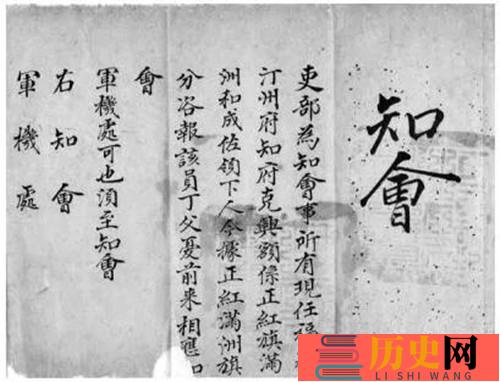 知會
吏部為知會事所有現任福
汀州府知府克興額係正紅旗滿
洲和成佐領下人今據正紅滿洲旗
分咨報該員丁父憂前来相應知
會
軍機處可也須至知會
右知會
軍機處
历史网
LI SHI WANG